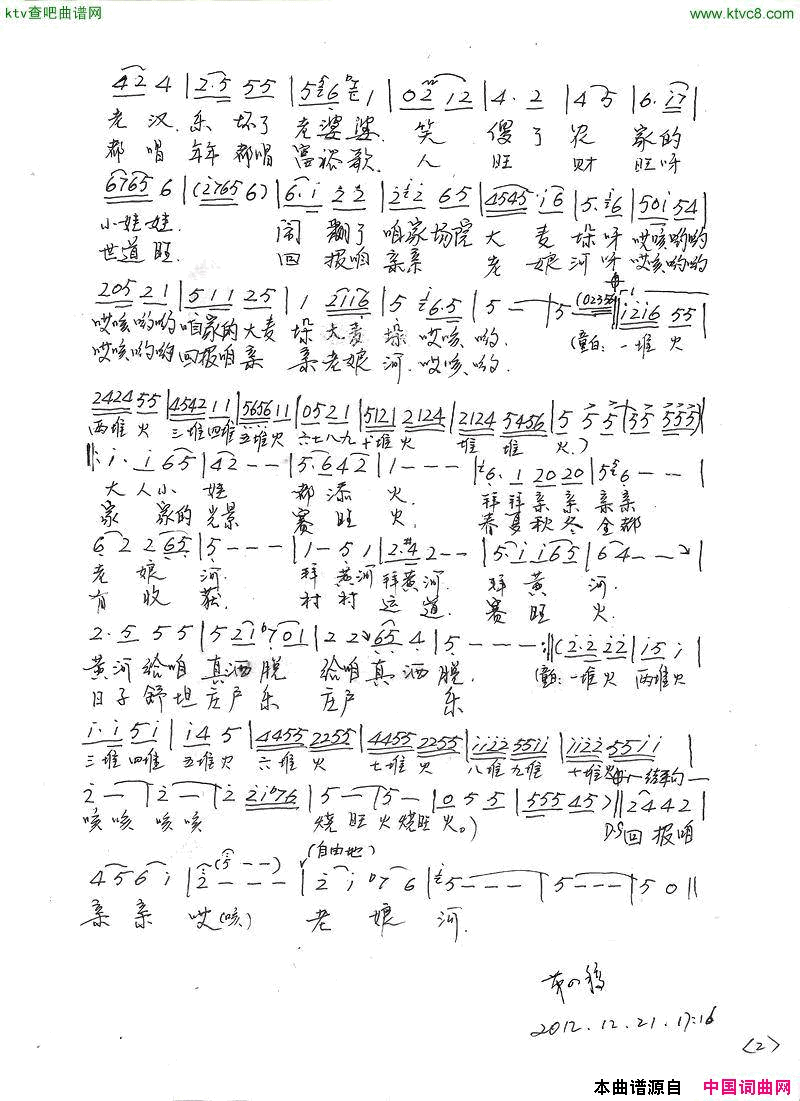 ktv查吧曲谱网
www.ktvc8.com
4 2 4 | 2·5 5 5 | 5 6 1 | 0 2 1 2 | 4· 2 | 4 5 | 6· i 7 |
老汉乐坏了老婆婆笑傻了农家的
都唱年年都唱富裕歌人旺财旺呀
6765 6 | (2765 6) | 6·i 2 2 | 2 2 6 5 | 4545 i6 | 5· 6 | 50i 54 |
小娃娃.闹翻了咱家场院大麦垛呀哎咳哟哟
世道旺.回报咱亲亲老娘河呀哎咳哟哟
205 21 | 511 25 | 1 2116 | 5 6·5 | 5 — | 5 (0235 | i2i6 55 |
哎咳哟哟咱家的大麦垛大麦垛哎咳哟.(童白:一堆火
哎咳哟哟回报咱亲亲老娘河.哎咳哟.
2424 55 | 4542 11 | 5656 11 | 05 21 | 5121 2124 | 2124 5456 | 5 5 5 | 55 555) |
两堆火三堆四堆五堆火六七八九十堆火堆堆火.)
i· i 65 | 42 - - | 5·6 42 | 1 - - - | 6·1 20 20 | 5 6 - - |
大人小娃都添火.拜拜亲亲亲亲
家家的光景赛旺火.春夏秋冬全都
6 2 2 65 | 5 - - - | 1 - 5 1 | 2·#4 2 - - | 5·i i65 | 64 - - |
老娘河.拜黄河拜黄河.拜黄河.
有收获.村村运道.赛旺火.
2·5 5 5 | 5 2i b7 0 1 | 2 2 65 4 | 5 - - - :‖ (2·2 22 | i5 i |
黄河给咱真洒脱给咱真洒脱.(童白:一堆火两堆火
日子舒坦庄户乐庄户乐
i·i 5i | i4 5 | 4455 2255 | 4455 2255 | ii22 55ii | ii22 55ii |
三堆四堆五堆火六堆火七堆火八堆九堆十堆火 结束句
2 — | 2 — | 2 2i b76 | 5 — | 5 — | 0 5 5 | 555 45) ‖ 2442 |
咳咳咳咳烧旺火烧旺火。) D.S 回报咱
(自由地)
4 5 6 i | 2 - - - (5 - -) | 2 i b7 6 | 5 - - - | 5 - - - | 5 0 ‖
亲亲哎(咳)老娘河.
2012.12.21.17:16
<2>
本曲谱源自 中国词曲网